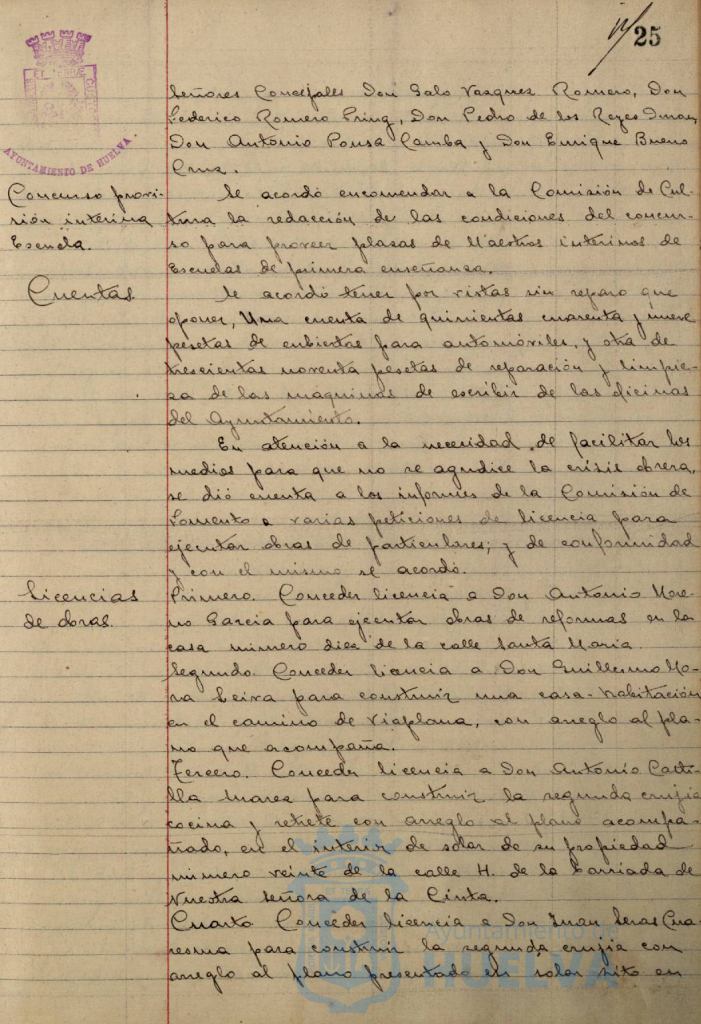 25
AYUNTAMIENTO DE HUELVA
Señores Concejales Don Galo Vazquez Romero, Don
Federico Romero Pring, Don Pedro de los Reyes
Don Antonio Pousa Camba y Don Enrique Bueno
Cruz.
Concurso provi-
sión interina
Escuela.
Se acordó encomendar a la Comisión de Cul-
tura la redacción de las condiciones del concur-
so para proveer plazas de Maestros interinos de
Escuelas de primera enseñanza.
Cuentas
Se acordó tener por vistas sin reparo que
oponer, Una cuenta de quinientas cuarenta y nueve
pesetas de cubiertas para automóviles, y otra de
trescientas noventa pesetas de reparación y limpie-
za de las máquinas de escribir de las oficinas
del Ayuntamiento.
En atención a la necesidad de facilitar los
medios para que no se agudice la crisis obrera,
se dió cuenta a los informes de la Comisión de
Fomento a varias peticiones de licencia para
ejecutar obras de particulares; y de conformidad
y con el mismo se acordó.
Licencias
de obras.
Primero. Conceder licencia a Don Antonio More-
no Garcia para ejecutar obras de reformas en la
casa número diez de la calle Santa Maria.
Segundo. Conceder licencia a Don Guillermo Mo-
ra Leiva para construir una casa-habitación
en el camino de Viaplana, con arreglo al pla-
no que acompaña.
Tercero. Conceder licencia a Don Antonio Casti-
lla para construir la segunda crujia
cocina y retrete con arreglo al plano acompa-
ñado, en el interior de solar de su propiedad
número veinte de la calle H. de la Barriada de
Nuestra Señora de la Cinta.
Cuarto Conceder licencia a Don Juan Seras Cua-
resma para construir la segunda crujia con
arreglo al plano presentado en solar sito en
Ayuntamiento de
HUELVA